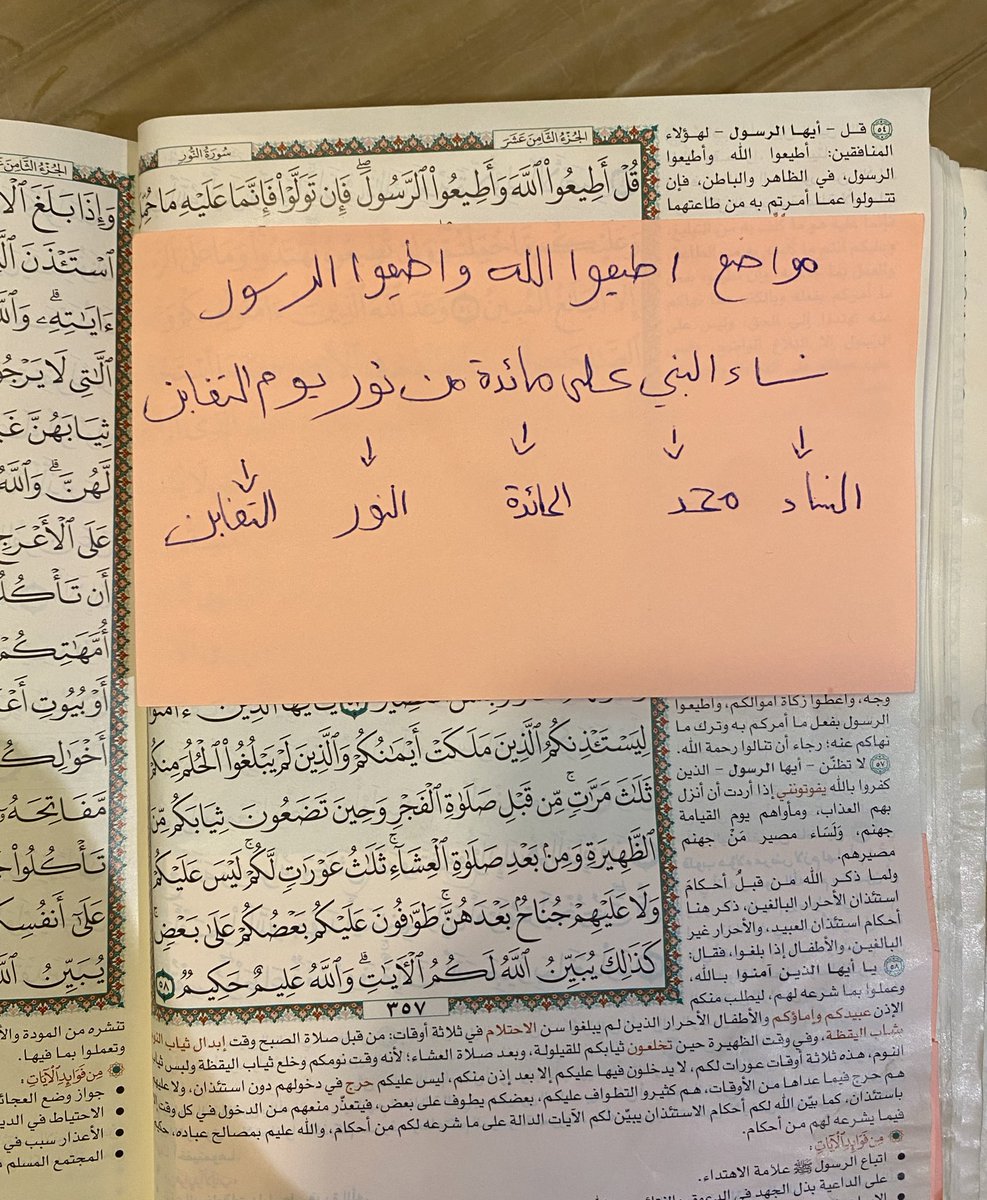 الجزء الثامن عشر
سورة النور
قُلْ أَطِيعُوا۟ ٱللَّهَ وَأَطِيعُوا۟ ٱلرَّسُولَ ۖ فَإِن تَوَلَّوْا۟ فَإِنَّمَا عَلَيْهِ مَا حُمِّلَ
مواضع اطيعوا الله واطيعوا الرسول
نساء النبي على مائدة من نور يوم التغابن
النساء محمد المائدة النور التغابن
لِيَسْتَـْٔذِنكُمُ ٱلَّذِينَ مَلَكَتْ أَيْمَـٰنُكُمْ وَٱلَّذِينَ لَمْ يَبْلُغُوا۟ ٱلْحُلُمَ مِنكُمْ
ثَلَـٰثَ مَرَّٰتٍ ۚ مِّن قَبْلِ صَلَوٰةِ ٱلْفَجْرِ وَحِينَ تَضَعُونَ ثِيَابَكُم مِّنَ
ٱلظَّهِيرَةِ وَمِنۢ بَعْدِ صَلَوٰةِ ٱلْعِشَآءِ ۚ ثَلَـٰثُ عَوْرَٰتٍ لَّكُمْ ۚ لَيْسَ عَلَيْكُمْ
وَلَا عَلَيْهِمْ جُنَاحٌۢ بَعْدَهُنَّ ۚ طَوَّٰفُونَ عَلَيْكُم بَعْضُكُمْ عَلَىٰ بَعْضٍ ۚ
كَذَٰلِكَ يُبَيِّنُ ٱللَّهُ لَكُمُ ٱلْـَٔايَـٰتِ ۗ وَٱللَّهُ عَلِيمٌ حَكِيمٌ ٥٨
٣٥٧
٥٤ قل - أيها الرسول - لهؤلاء
المنافقين: أطيعوا الله وأطيعوا
الرسول، في الظاهر والباطن، فإن
تتولوا عما أمرتم به من طاعتهما
وجه، وأعطوا زكاة أموالكم، وأطيعوا
الرسول بفعل ما أمركم به وترك ما
نهاكم عنه: رجاء أن تنالوا رحمة الله.
٥٧ لا تظنّن - أيها الرسول - الذين
كفروا بالله يفوتونني إذا أردت أن أنزل
بهم العذاب، ومأواهم يوم القيامة
جهنم، وَلَسَاء مصير مَنْ جهنم
مصيرهم.
ولما ذكر الله من قبلُ أحكامَ
استئذان الأحرار البالغين، ذكر هنا
أحكام استئذان العبيد، والأحرار غير
البالغين، والأطفال إذا بلغوا، فقال:
٥٨ يا أيها الذين آمنوا بالله،
وعملوا بما شرعه لهم، ليطلب منكم
الإذن عبيدكم وإماؤكم والأطفال الأحرار الذين لم يبلغوا سن الاحتلام في ثلاثة أوقات: من قبل صلاة الصبح وقت إبدال ثياب
بثياب اليقظة، وفي وقت الظهيرة حين تخلعون ثيابكم للقيلولة، وبعد صلاة العشاء؛ لأنه وقت نومكم وخلع ثياب اليقظة ولبس ثياب
النوم، هذه ثلاثة أوقات عورات لكم، لا يدخلون فيها عليكم إلا بعد إذن منكم، ليس عليكم حرج في دخولهم دون استئذان، ولا
هم حرج فيما عداها من الأوقات، هم كثيرو التطواف عليكم، بعضكم يطوف على بعض، فيتعذّر منعهم من الدخول في كل وقت
باستئذان، كما بيّن الله لكم أحكام الاستئذان يبيّن لكم الآيات الدالة على ما شرعه لكم من أحكام، والله عليم بمصالح عباده،
فيما يشرعه لهم من أحكام.
من فوائد الآيات:
• اتباع الرسول ﷺ علامة الاهتداء.
• على الداعية بذل الجهد في الدعوة
الجزء الثامن
وَإِذَا بَلَغَ
ٱسْتَـْٔذَنَ
ءَايَـٰتِهِۦ ۗ
ٱلَّـٰتِى لَا
ثِيَابَهُنَّ
لَّهُنَّ ۗ
عَلَى ٱلْأَعْرَجِ
أَن تَأْكُلُوا۟
أُمَّهَـٰتِكُمْ
أَوْ بُيُوتِ
مَّفَاتِحَهُۥٓ
عَلَىٰٓ
يُبَيِّنُ
تنشره من المودة
وتعملوا بما فيها.
من فوائد الآيات:
• جواز وضع
• الاحتياط في
• الأعذار سبب في
• المجتمع المسلم